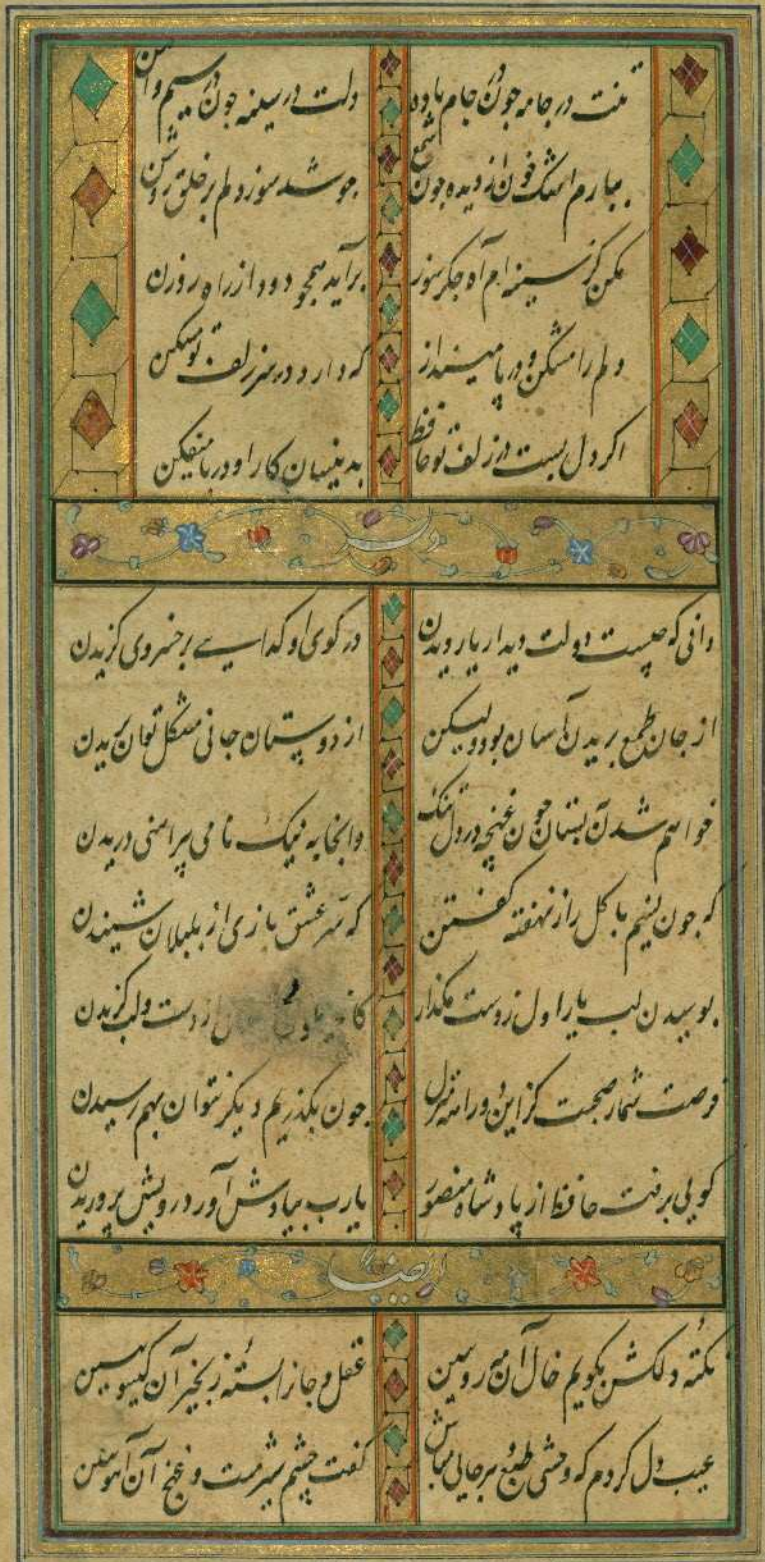 تنت در جامه چون در جام باده دلت در سینه چون در سیم آهن
ببارم اشک خون از دیده چون شمع چو شد سوز دلم بر خلق روشن
مکن کز سینه ام آه جکر سوز برآید همچو دود از راه روزن
دلم را مشکن و در پا مینداز که دارد در سر زلف تو مسکن
اکر دل بست در زلف تو حافظ بدینسان کار او در پا میفکن
وله
دانی که چیست دولت دیدار یار دیدن در کوی او کدایی بر خسروی کزیدن
از جان طمع بریدن آسان بود ولیکن از دوستان جانی مشکل توان بریدن
خواهم شدن بستان چون غنچه در دل تنک وانجا به نیک نامی پیراهنی دریدن
که چون نسیم با کل راز نهفته کفتن که سر عشق بازی از بلبلان شنیدن
بوسیدن لب یار اول ز دست مکذار از دست و لب کزیدن
فرصت شمار صحبت کز این دو راهه منزل چون بکذریم دیکر نتوان بهم رسیدن
کویی برفت حافظ از یاد شاه منصور یارب بیادش آور درویش پروریدن
ایضا
نکته دلکش بکویم خال آن مه رو ببین عقل و جانرا بسته زنجیر آن کیسو ببین
عیب دل کردم که وحشی طبع و هر جایی مباش کفت چشم شیرمست و غنج آن آهو ببین